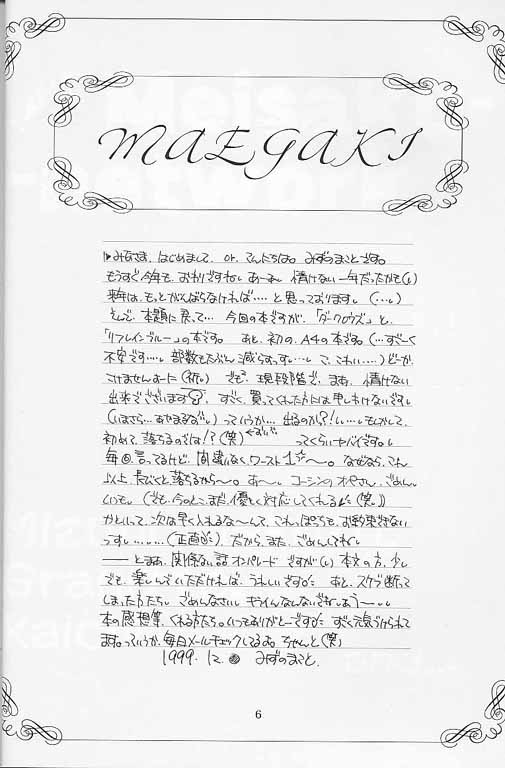 MAEGAKI
みなさま、はじめまして、or、こんにちは。みずのまことです。
もうすぐ今年も、おわりですねし あーあ、情けない一年だったかも(し
来年は、もっとがんばらなければ‥‥と思っておりますし(…し)
そんで、本題に戻って… 今回の本ですが、「ダークロウズ」と、
「リフレインブルー」の本です。 あと、初の、A4の本です。(…すごーく
不安です…し 部数もたぶん 減らすっすし…し こ、こわい‥‥)どーか、
こけませんよーに(祈し) でも、現段階で、まあ、情けない
出来でございます? すごく、買ってくれた方には申しわけないですし
(いまさら…あやまるなし) っていうか… 出るのか?!し…し もしかして、
初めて、落ちるのでは!?(笑) ってくらいヤバイです。し
毎回、言ってるけど、間違いなく、ワースト1☆〜。なぜなら、これ
以上、長びくと、落ちるから〜。あー。し コーシンのオペさん、ごめんし
いもし (でも、今のとこ、まだ、優しく対応してくれるし(笑し))
かといって、次は早く入れるなーんて、これっぽっちも、お約束できない
っすし…し…し (正直) だから、また、ごめんしてねし
―― とまあ、関係ない話オンパレードですが(し) 本文の方、少し
でも、楽しんでいただければ、うれしいです。 あと、スケブ断って
しまった方たちし ごめんなさいし
本の感想等、くれる方たち。いつもありがとーです すごく元気づけられて
ます。っていうか、毎日メールチェックしてるよ。ちゃんと(笑)
1999. 12. みずのまこと。
6